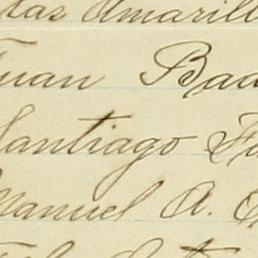 las Amarill
Juan Bad
Santiago Fa
Manuel A.